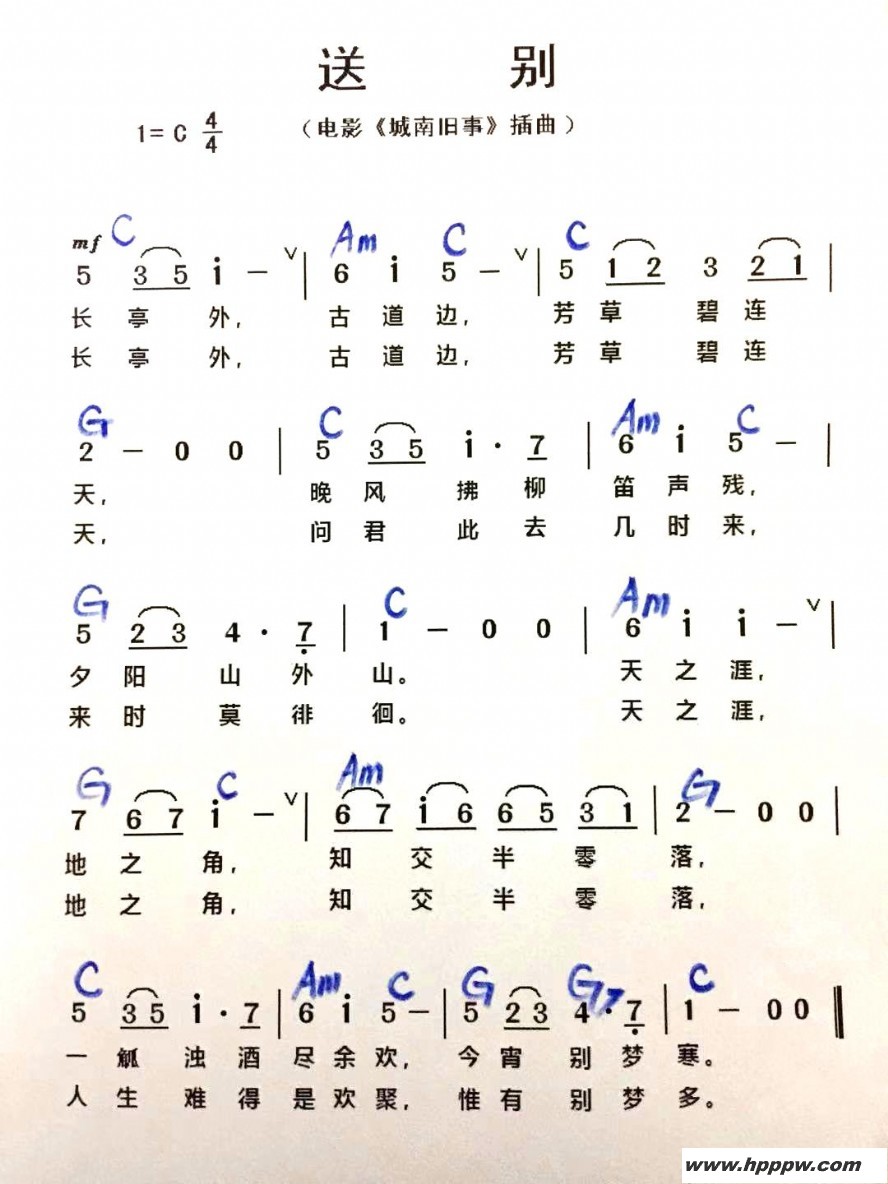 送 别
1= C 4/4 （电影《城南旧事》插曲）
mf C Am C C
5 3 5 i – ∨ | 6 i 5 – ∨ | 5 1 2 3 2 1 |
长 亭 外, 古 道 边, 芳 草 碧 连
长 亭 外, 古 道 边, 芳 草 碧 连
G C Am C
2 – 0 0 | 5 3 5 i · 7 | 6 i 5 – |
天, 晚 风 拂 柳 笛 声 残,
天, 问 君 此 去 几 时 来,
G C Am
5 2 3 4 · 7 | 1 – 0 0 | 6 i i – ∨ |
夕 阳 山 外 山。 天 之 涯,
来 时 莫 徘 徊。 天 之 涯,
G C Am G
7 6 7 i – ∨ | 6 7 i 6 6 5 3 1 | 2 – 0 0 |
地 之 角, 知 交 半 零 落,
地 之 角, 知 交 半 零 落,
C Am C G G7 C
5 3 5 i · 7 | 6 i 5 – | 5 2 3 4 · 7 | 1 – 0 0 ‖
一 觚 浊 酒 尽 余 欢, 今 宵 别 梦 寒。
人 生 难 得 是 欢 聚, 惟 有 别 梦 多。
www.hpppw.com